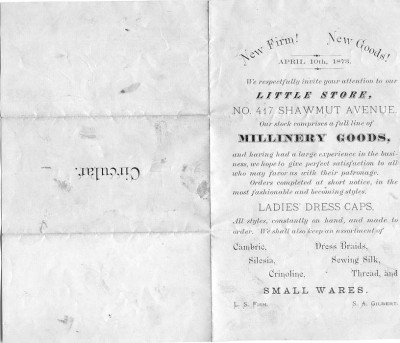 New Firm! New Goods!
APRIL 10th, 1876.
We respectfully invite your attention to our
LITTLE STORE,
NO. 417 SHAWMUT AVENUE.
Our stock comprises a full line of
MILLINERY GOODS,
and having had a large experience in the busi-
ness, we hope to give perfect satisfaction to all
who may favor us with their patronage.
Orders completed at short notice, in the
most fashionable and becoming styles.
LADIES' DRESS CAPS.
All styles, constantly on hand, and made to
order. We shall also keep an assortment of
Cambric, Dress Braids,
Silesia, Sewing Silk,
Crinoline, Thread, and
SMALL WARES.
L. S. S. A. GILBERT.
Circular.